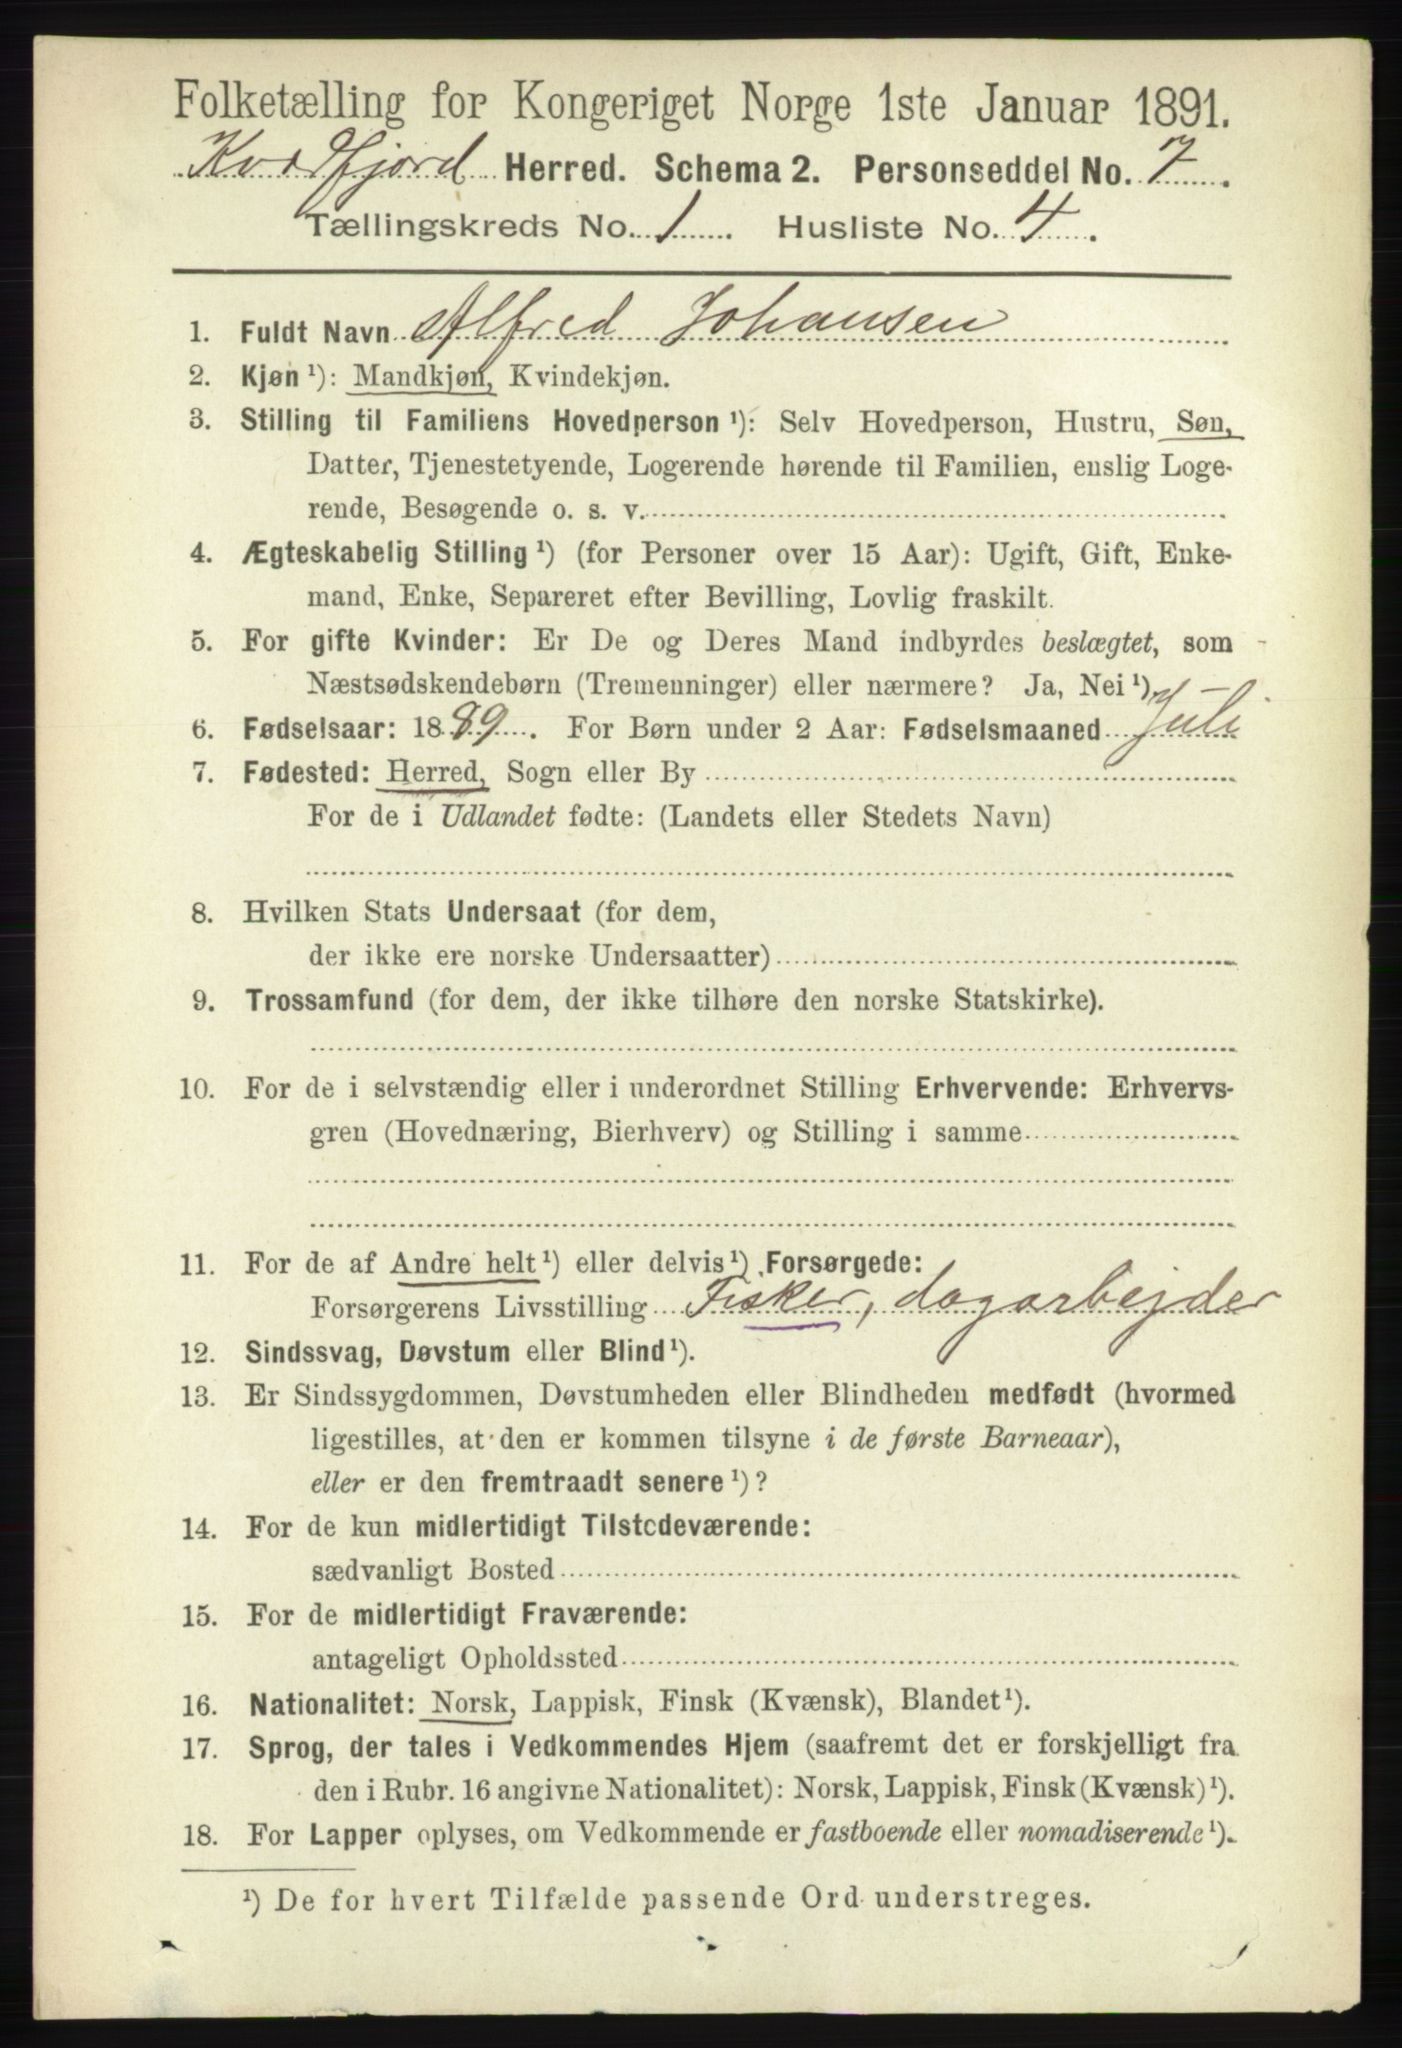 Folketælling for Kongeriget Norge 1ste Januar 1891.
Kvædfjord Herred. Schema 2. Personseddel No. 7.
Tællingskreds No. 1. Husliste No. 4.
1. Fuldt Navn Alfred Johansen
2. Kjøn ¹): Mandkjøn, Kvindekjøn.
3. Stilling til Familiens Hovedperson ¹): Selv Hovedperson, Hustru, Søn,
Datter, Tjenestetyende, Logerende hørende til Familien, enslig Loge-
rende, Besøgende o. s. v.
4. Ægteskabelig Stilling ¹) (for Personer over 15 Aar): Ugift, Gift, Enke-
mand, Enke, Separeret efter Bevilling, Lovlig fraskilt.
5. For gifte Kvinder: Er De og Deres Mand indbyrdes beslægtet, som
Næstsødskendebørn (Tremenninger) eller nærmere? Ja, Nei ¹).
6. Fødselsaar: 1889. For Børn under 2 Aar: Fødselsmaaned Juli
7. Fødested: Herred, Sogn eller By
For de i Udlandet fødte: (Landets eller Stedets Navn)
8. Hvilken Stats Undersaat (for dem,
der ikke ere norske Undersaatter)
9. Trossamfund (for dem, der ikke tilhøre den norske Statskirke).
10. For de i selvstændig eller i underordnet Stilling Erhvervende: Erhvervs-
gren (Hovednæring, Bierhverv) og Stilling i samme
11. For de af Andre helt ¹) eller delvis ¹) Forsørgede:
Forsørgerens Livsstilling Fisker, dagarbejder
12. Sindssvag, Døvstum eller Blind ¹).
13. Er Sindssygdommen, Døvstumheden eller Blindheden medfødt (hvormed
ligestilles, at den er kommen tilsyne i de første Barneaar),
eller er den fremtraadt senere ¹)?
14. For de kun midlertidigt Tilstedeværende:
sædvanligt Bosted
15. For de midlertidigt Fraværende:
antageligt Opholdssted
16. Nationalitet: Norsk, Lappisk, Finsk (Kvænsk), Blandet ¹).
17. Sprog, der tales i Vedkommendes Hjem (saafremt det er forskjelligt fra
den i Rubr. 16 angivne Nationalitet): Norsk, Lappisk, Finsk (Kvænsk) ¹).
18. For Lapper oplyses, om Vedkommende er fastboende eller nomadiserende ¹).
¹) De for hvert Tilfælde passende Ord understreges.